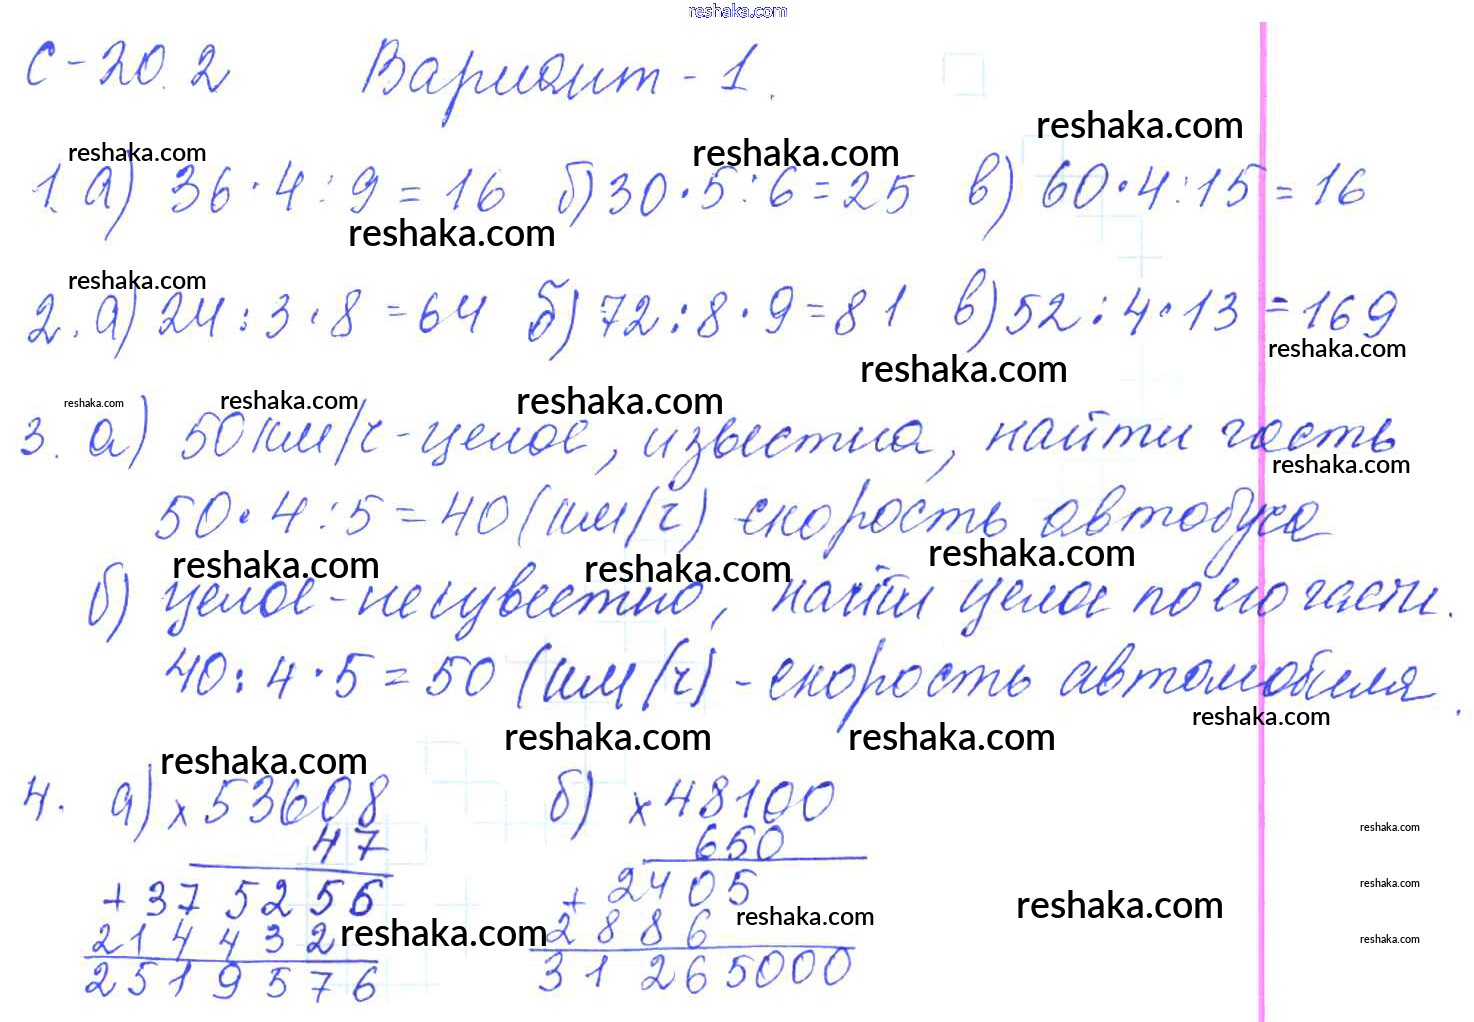 reshaka.com
С-20.2 Вариант-1.
reshaka.com reshaka.com reshaka.com
1. а) 36·4:9=16 б) 30·5:6=25 в) 60·4:15=16
reshaka.com
reshaka.com
2. а) 24:3·8=64 б) 72:8·9=81 в) 52:4·13=169
reshaka.com reshaka.com
reshaka.com reshaka.com reshaka.com
3. а) 50км/ч-целое, известна, найти часть
reshaka.com
50·4:5=40(км/ч) скорость автобуса
reshaka.com reshaka.com reshaka.com
б) целое-неизвестно, найти целое по его части.
40:4·5=50 (км/ч) - скорость автомобиля.
reshaka.com
reshaka.com reshaka.com
reshaka.com
4. а) х53608 б) х48100
47 650
reshaka.com
+375256 +2405
reshaka.com reshaka.com reshaka.com
214432 2886
reshaka.com reshaka.com
2519576 31265000